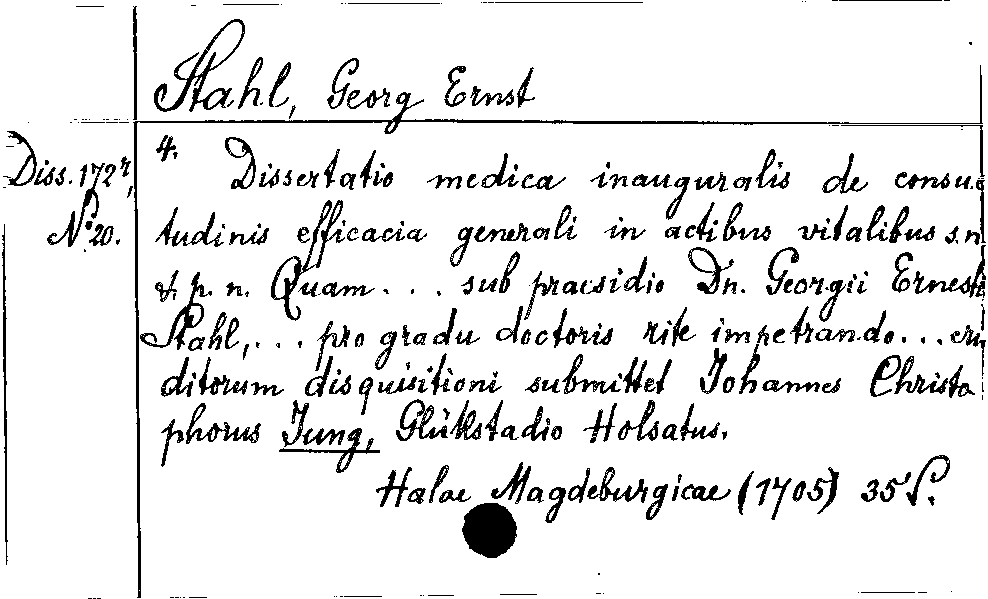 Stahl, Georg Ernst
Diss. 172r,
No 20.
4. Dissertatio medica inauguralis de consue
tudinis efficacia generali in actibus vitalibus s. n.
& p. n. Quam . . . sub praesidio Dn. Georgii Ernesti
Stahl, . . . pro gradu doctoris rite impetrando . . . eru
ditorum disquisitioni submittet Johannes Christo
phorus Jung, Glükstadio Holsatus.
Halae Magdeburgicae (1705) 35 S.